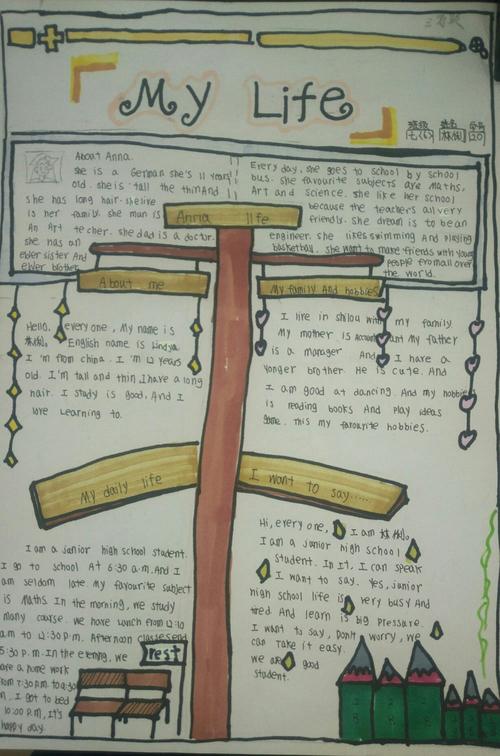 My Life
班级
姓名
学号
七(6)
20
Anna life
About Anna.
she is a German she's 11 years
old. she is tall the thin And
she has long hair. she live
is her family. she mum is
An Art teacher. she dad is a doctor.
she has an
elder sister And
elder brother.
Every day, she goes to school by school
bus. she favourite subjects are Maths,
Art and science. she like her school
because the teachers all very
friendly. She dream is to bean
engineer. she likes swimming and playing
basketball. she want to make friends with young
people from all over
the world.
About me
Hello, everyone, My name is
English name is
I'm from china. I'm 12 years
old. I'm tall and thin I have a long
hair. I study is good, And I
love Learning to.
My family And hobbies
I like in shilou with my family
My mother is Accountant and My father
is a manager And I have a
yonger brother. He is cute. And
I am good at dancing. And my hobbies
is reading books And play ideas
Game. This my favourite hobbies.
My daily life
I am a junior high school student.
I go to school At 6:30 a.m. And I
am seldom late My favourite subject
is Maths. In the morning, we study
many course. we have lunch from 12:10
am to 12:30 p.m. Afternoon classes end
5:30 p.m. In the evening, we
have a home work
from 7:30 p.m. to
I got to bed
10:00 P.M. It's
happy day.
rest
I want to say.....
Hi, every one, I am
I am a junior high school
student. In it, I can speak
I want to say. Yes, junior
high school life is very busy And
tired. And learn is big pressure.
I want to say, Don't worry, we
can take it easy.
we are good
student.